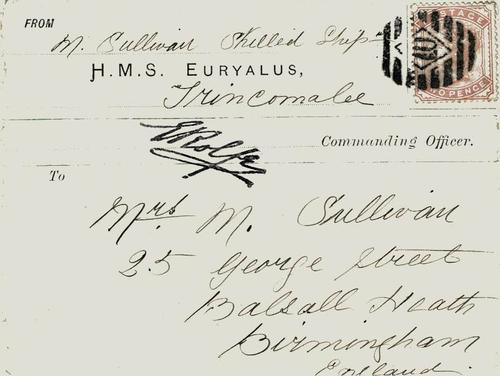 FROM
M. Sullivan Skilled Ship
H.M.S. EURYALUS,
Trincomalee
Commanding Officer.
To
Mrs M. Sullivan
25 George Street
Balsall Heath
Birmingham
England.
POSTAGE
TWO PENCE